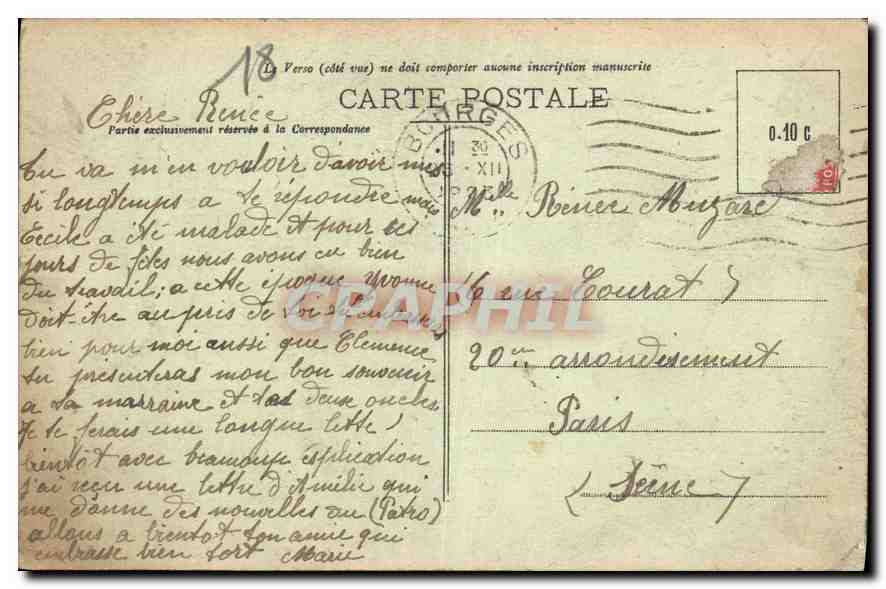 18
Le Verso (côté vue) ne doit comporter aucune inscription manuscrite
CARTE POSTALE
Chère Renée
Partie exclusivement réservée à la Correspondance
BOURGES
30
XII
0.10 C
Tu va m'en vouloir d'avoir mis
si longtemps a te répondre mais
Cécile a été malade et pour ces
jours de fêtes nous avons eu bien
du travail; a cette époque Yvonne
doit-être au pris de toi
bien pour moi aussi que Clemence
tu presenteras mon bon souvenir
a ta marraine et tes deux oncles
Je te ferais une longue lette
bientôt avec beaucoup esplication
j'ai reçu une lettre d'Amélie qui
me donne des nouvelles du (Patro)
allons a bientot ton amie qui
embrasse bien fort Marie
Melle Rénée Muzard
6 rue Courat
20em arrondisement
Paris
(Seine)
CPAPHIL